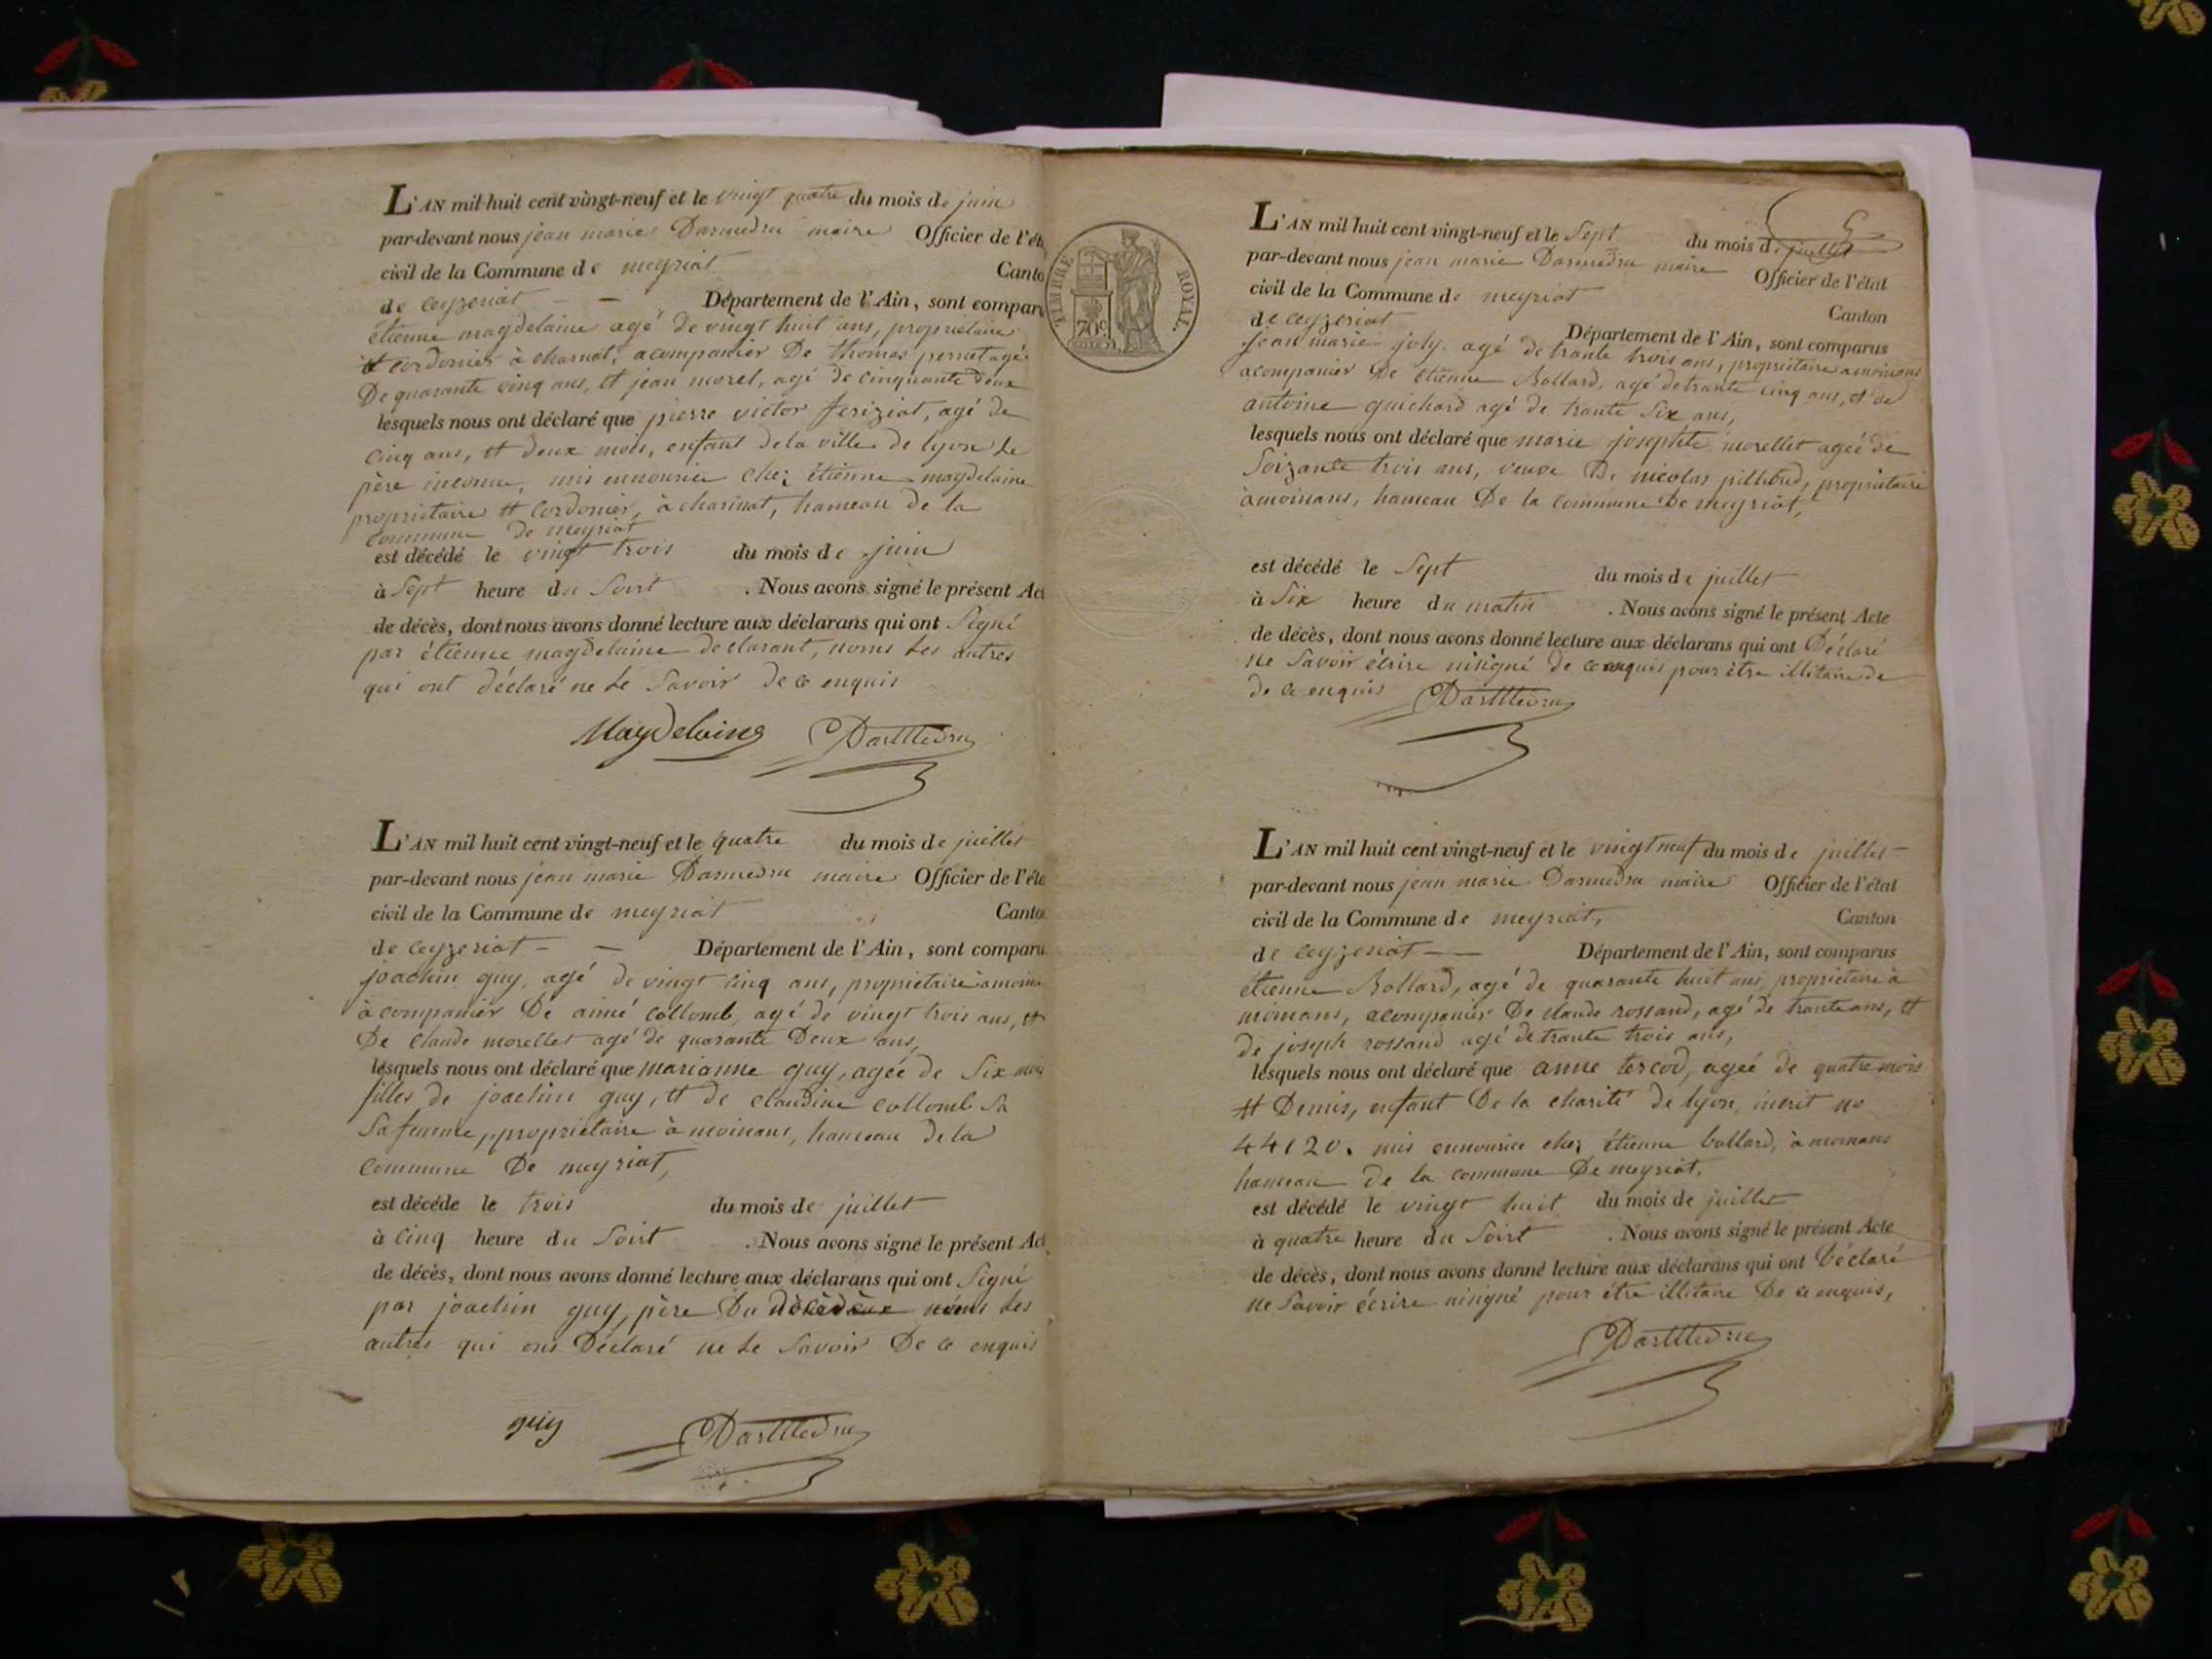 L'AN mil huit cent vingt-neuf et le vingt quatre du mois de juin
par-devant nous jean marie Darmedru maire Officier de l'éta
civil de la Commune de meyriat Canto
de ceyzeriat — — Département de l'Ain, sont compar
étienne magdelaine agé de vingt huit ans, propriétaire
et cordonier à charinat, acompanier De thomas perret agé
De quarante cinq ans, et jean morel, agé de cinquante deux
lesquels nous ont déclaré que pierre victor feriziat, agé de
cinq ans, et deux mois, enfant de la ville de lyon de
père inconnu, mis ennourice chez étienne magdelaine
propriétaire et cordonier, à charinat, hameau de la
commune de meyriat
est décédé le vingt trois du mois de juin
à Sept heure du Soirt . Nous avons signé le présent Act
de décès, dont nous avons donné lecture aux déclarans qui ont Signé
par étienne magdelaine declarant, nonns les autres
qui ont déclaré ne le Savoir de ce enquis
Magdelaine Darmedru
L'AN mil huit cent vingt-neuf et le quatre du mois de juillet
par-devant nous jean marie Darmedru maire Officier de l'éta
civil de la Commune de meyriat Canto
de ceyzeriat — — Département de l'Ain, sont comparu
joachin guy, agé de vingt cinq ans, propriétaire amoin
àcompanier De aimé collomb, agé de vingt trois ans, et
De claude morellet agé de quarante Deux ans,
lesquels nous ont déclaré que marianne guy, agée de Six mois
filles de joachin guy, et de claudine collomb Sa
Sa femme, propriétaire à moinans, hameau de la
commune De meyriat,
est décéde le trois du mois de juillet
à Cinq heure du Soirt . Nous avons signé le présent Act
de décès, dont nous avons donné lecture aux déclarans qui ont Signé
par joachin guy, père Du nonns les
autres qui ons Déclaré ne le Savoir De ce enquis
guy Darmedru
TIMBRE ROYAL.
70c
5
L'AN mil huit cent vingt-neuf et le Sept du mois de juillet
par-devant nous jean marie Darmedru maire Officier de l'état
civil de la Commune de meyriat Canton
de ceyzeriat Département de l'Ain, sont comparus
Jean marie joly agé de trante trois ans, propriétaire a moinans
acompanier De étienne Bollard, agé de trante cinq ans, et de
antoine guichard agé de trante Six ans,
lesquels nous ont déclaré que marie josephte morellet ageé de
Soizante trois ans, veuve De nicolas pillebud, propriétaire
àmoinans, hameau De la commune De meyriat,
est décédé le Sept du mois de juillet
à Six heure du matin . Nous avons signé le présent Acte
de décès, dont nous avons donné lecture aux déclarans qui ont Déclaré
ne Savoir écrire nisigné de ce enquis pour être illitaire de
de ce enquis Darmedru
L'AN mil huit cent vingt-neuf et le vingt neuf du mois de juillet
par-devant nous jean marie Darmedru maire Officier de l'état
civil de la Commune de meyriat, Canton
de ceyzeriat — — Département de l'Ain, sont comparus
étienne Bollard, agé de quarante huit ans, propriétaire à
moinans, acompanier De claude rossand, agé de trante ans, et
de joseph rossand agé de trante trois ans,
lesquels nous ont déclaré que anne tercod, ageé de quatre mois
et Demis, enfant De la charité de lyon, incrit no
44120. mis ennourice chez étienne bollard, à moinans
hameau de la commune De meyriat,
est décédé le vingt huit du mois de juillet
à quatre heure du Soirt . Nous avons signé le présent Acte
de décès, dont nous avons donné lecture aux déclarans qui ont Déclaré
ne Savoir écrire nisigné pour être illitaire De ce enquis,
Darmedru